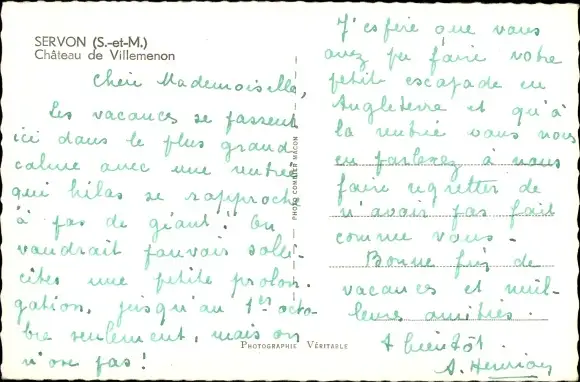 SERVON (S.-et-M.)
Château de Villemenon
Chère Mademoiselle,
Les vacances se passent
ici dans le plus grand
calme avec une rentrée
qui hélas se rapproche
à pas de géant ! On
voudrait pouvoir solli-
citer une petite prolon-
gation, jusqu'au 1er octo-
bre seulement, mais on
n'ose pas !
PHOTO COMBIER MACON
Photographie Véritable
J'espère que vous
avez pu faire votre
petite escapade en
Angleterre et qu'à
la rentrée vous nous
en parlerez à nous
faire regretter de
n'avoir pas fait
comme vous.
Bonne fin de
vacances et meil-
leures amitiés.
A bientôt.
A. Henrion